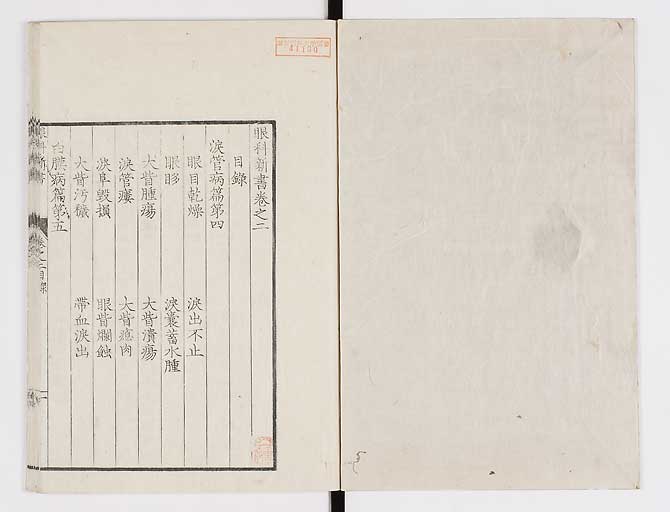 眼科新書卷之二
目錄
淚管病篇第四
眼目乾燥 淚出不止
眼眵 淚囊蓄水腫
大眥腫瘍 大眥潰瘍
淚管瘻 大眥瘜肉
淚阜毀損 眼眥爛蝕
大眥污穢 帶血淚出
白膜病篇第五
卷之二目錄
一
41190